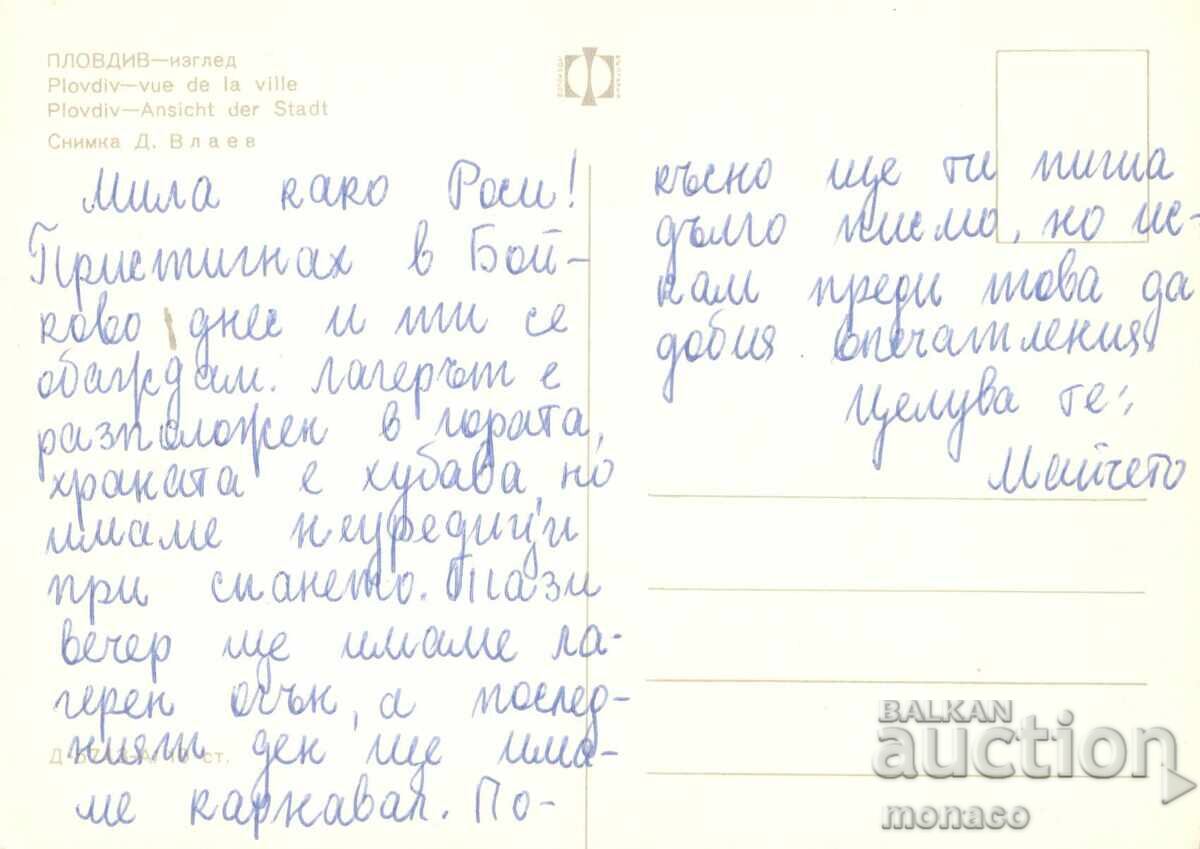 ПЛОВДИВ—изглед
Plovdiv—vue de la ville
Plovdiv—Ansicht der Stadt
Снимка Д. Влаев
Мила како Роси!
Пристигнах в Бой-
ково днес и ти се
обаждам. Лагерът е
разположен в гората,
храната е хубава, но
имаме неуредици
при спането. Тази
вечер ще имаме ла-
герен огън, а послед-
ният ден ще има-
ме карнавал. По-
късно ще ти пиша
дълго писмо, но ис-
кам преди това да
добия впечатления
Целува те:
Майчето
ст.
BALKAN
auction
monaco